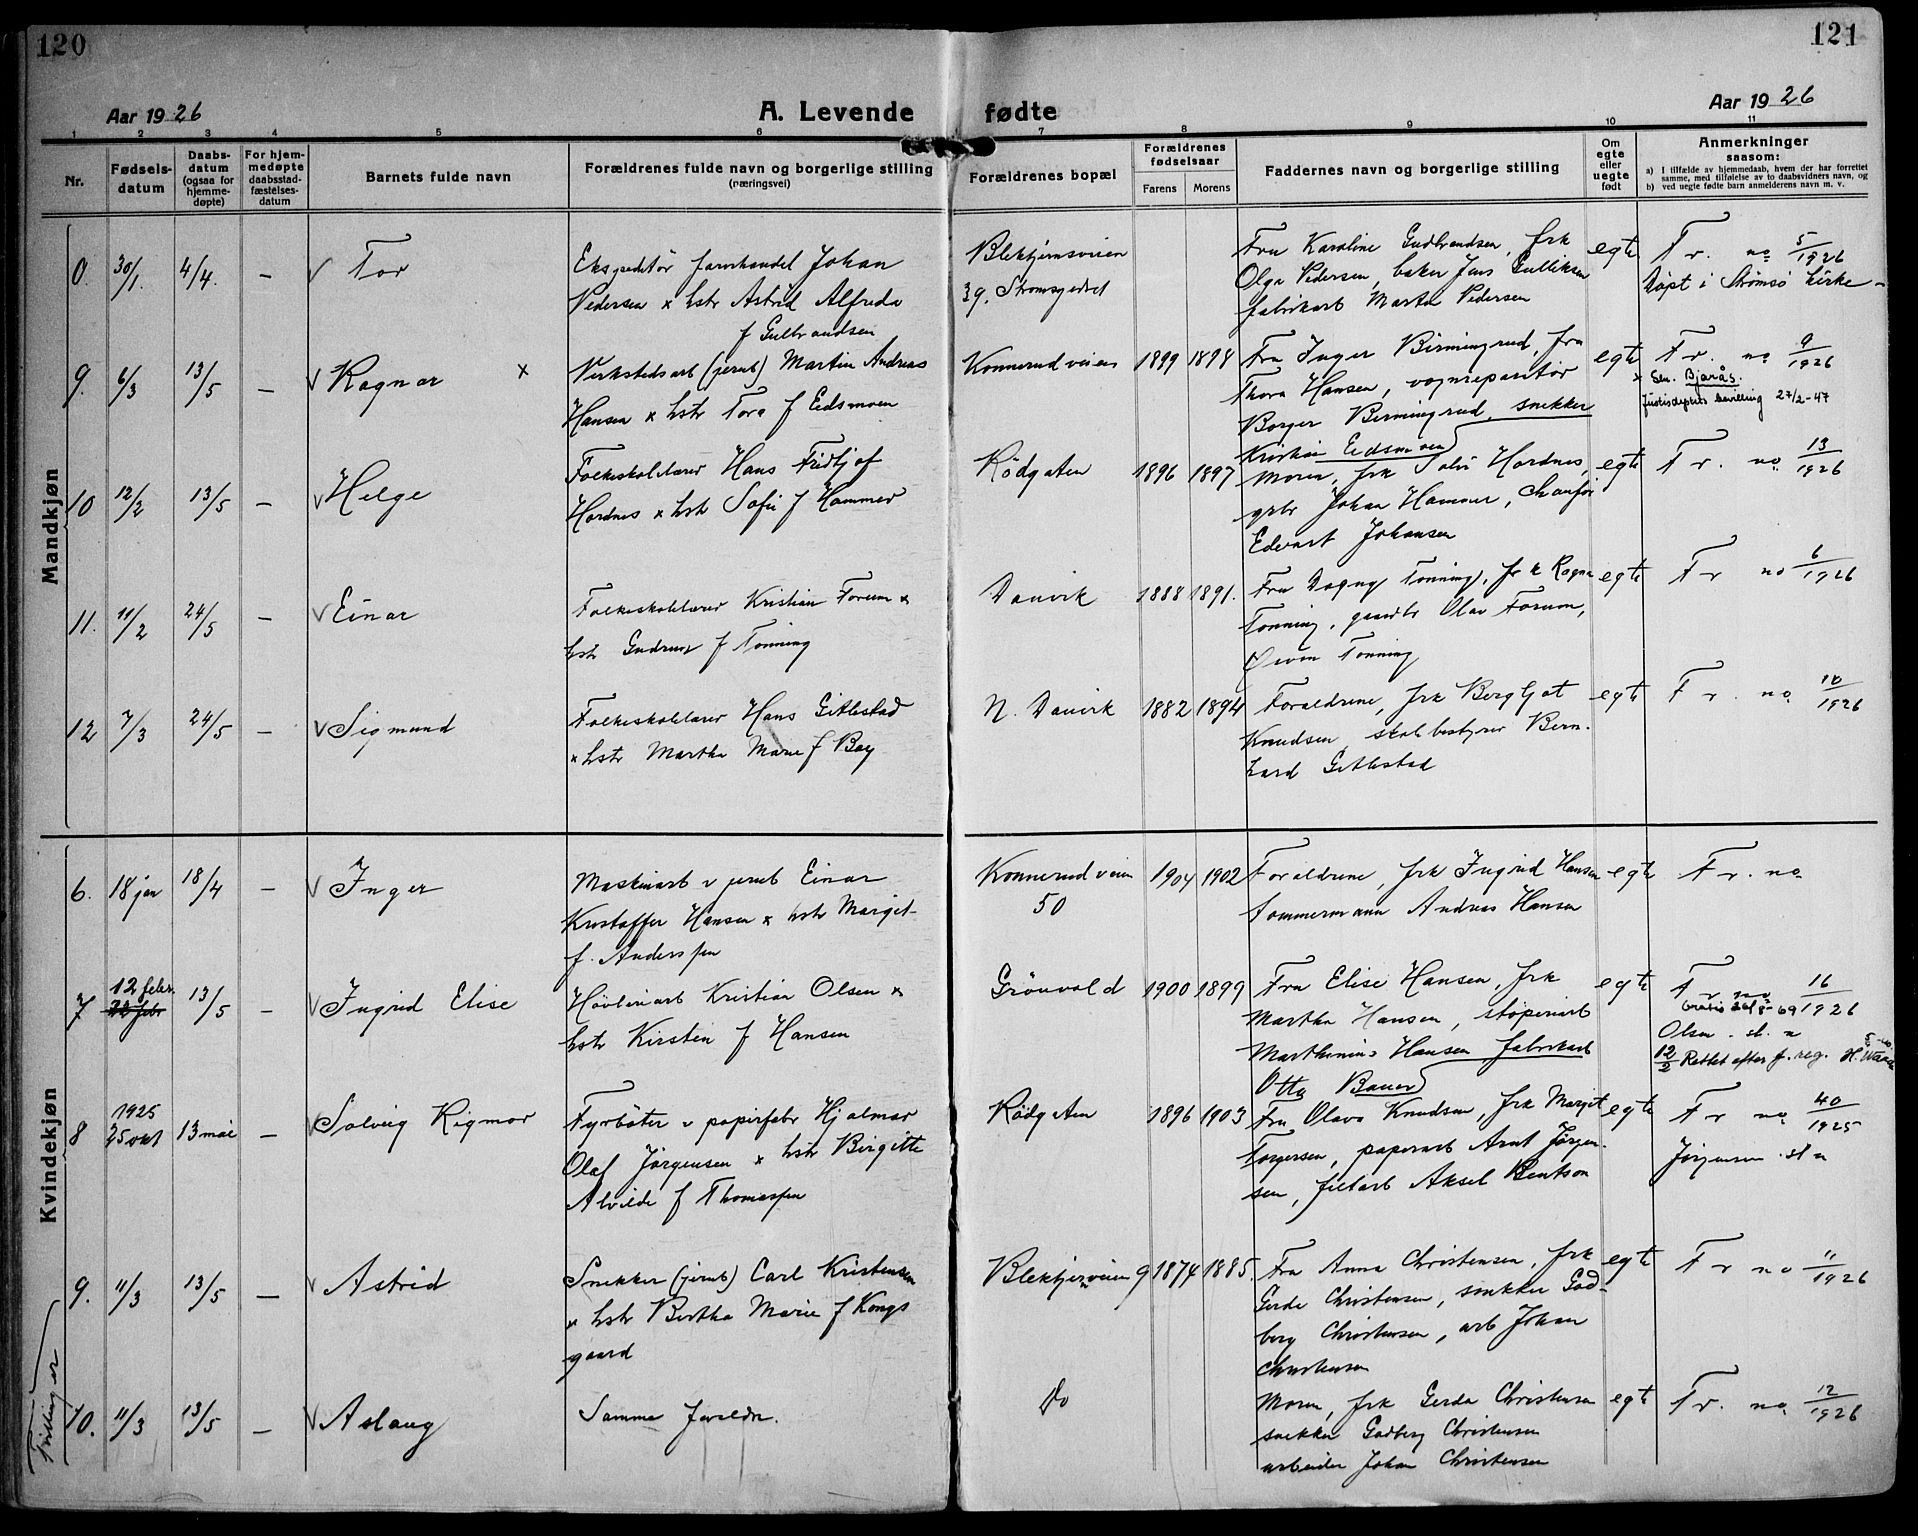 120
121
Aar 1926
A. Levende fødte
Aar 1926
1 2 3 4 5 6 7 8 9 10 11
Nr.
Fødsels-
datum
Daabs-
datum
(ogsaa for
hjemme-
døpte)
For hjem-
medøpte
daabsstad-
fæstelses-
datum
Barnets fulde navn
Forældrenes fulde navn og borgerlige stilling
(næringsvei)
Forældrenes bopæl
Forældrenes
fødselsaar
Farens
Morens
Faddernes navn og borgerlige stilling
Om
egte
eller
uegte
født
Anmerkninger
saasom:
a) I tilfælde av hjemmedaab, hvem der har forrettet
samme, med tilføielse av to daabsvidners navn, og
b) ved uegte fødte barn anmelderens navn m. v.
Mandkjøn
0. 30/1. 4/4. — Tor
Ekspeditør Johan
Pedersen x hstr Astrid Alfreda
f Gulbrandsen
Blektjernsveien
39. Strømsgodset
Fru Karoline Gudbrandsen, frk
Olga Pedersen, baker Jens Gulliksen
fabrikarb Martin Pedersen
egte
Fr. no 5/1926
Døpt i Strømsø kirke
9. 6/3 13/5 — Ragnar x
Verkstedsarb (jernb) Martin Andreas
Hansen x hstr Tora f Eidsmoen
Konnerudveien
1899 1898
Fru Inger Birmingrud, fru
Thora Hansen, vognreparatør
Borger Birmingrud, snekker
Kristian Eidsmoen
egte
Fr. no 9/1926
x Sln. Bjarås.
Justisdeptets bevilling 27/2-47
10 12/2 13/5 — Helge
Folkeskolelærer Hans Fridtjof
Hordnes x hstr Sofie f Hammer
Rödgaten
1896 1897
Moren, frk Hordnes,
Johan Hammer, Chauffør
Edvart Johansen
egte
Fr. no 13/1926
11. 11/2 24/5 — Einar
Folkeskolelærer Kristian Forum x
hstr Gudrun f Tönning
Danvik
1888 1891.
Fru Dagny Tönning, frk Ragna
Tönning, gaardbr Olav Forum,
Tönning
egte
Fr no 6/1926
12 7/3 24/5 — Sigmund
Folkeskolelærer Hans Gitlestad
x hstr Martha Marie f Bøy
N. Danvik
1882 1894
Forældrene, frk Bergljot
Knudsen, skolebestyrer Bern-
hard Gitlestad
egte
Fr. no 10/1926
Kvindekjøn
6. 18 jan 18/4 — Inger
Maskinarb v jernb Einar
Kristoffer Hansen x hstr Margit
f. Anderssen
Konnerudveien
50
1904 1902
Forældrene, frk Ingrid Hansen
tømmermann Andreas Hansen
egte
Fr. no
7 12 febr. 22 febr 13/5 — Ingrid Elise
Høvleriarb Kristian Olsen x
hstr Kirsten f Hansen
Grönvold
1900 1899
Fru Elise Hansen, frk
Martha Hansen, støperiarb
Marthinius Hansen fabrikarb
Otto Bauer
egte
Fr no 16/1926
Gratis 26/8-69
Olsen. sl. n
12/2 Rettet efter f. reg.
8 1925 25 okt 13 mai — Solveig Rigmor
Fyrbøter v papirfabr Hjalmar
Olaf Jørgensen x hstr Birgitte
Alvilde f Thomassen
Rödgaten
1896 1903
Fru Olava Knudsen, frk Margit
Torgersen, papirarb Arnt Jørgen-
sen, filtarb Aksel Bentson
egte
Fr no 40/1925
Jørgensen sl n
9. 11/3 13/5 — Astrid
Snekker (jernb) Carl Kristensen
x hstr Bertha Marie f Kongs
gaard
Blektjernveien 9
1874 1885.
Fru Anna Christensen, frk
Gerda Christensen, snekker God-
berg Christensen, arb Johan
Christensen
egte
Fr no 11/1926
Tvillinger
10. 11/3 13/5 — Aslaug
Samme foreldre.
Do
Moren, frk Gerda Christensen
snekker Godberg Christensen
arbeider Johan Christensen
egte
Fr. no 12/1926